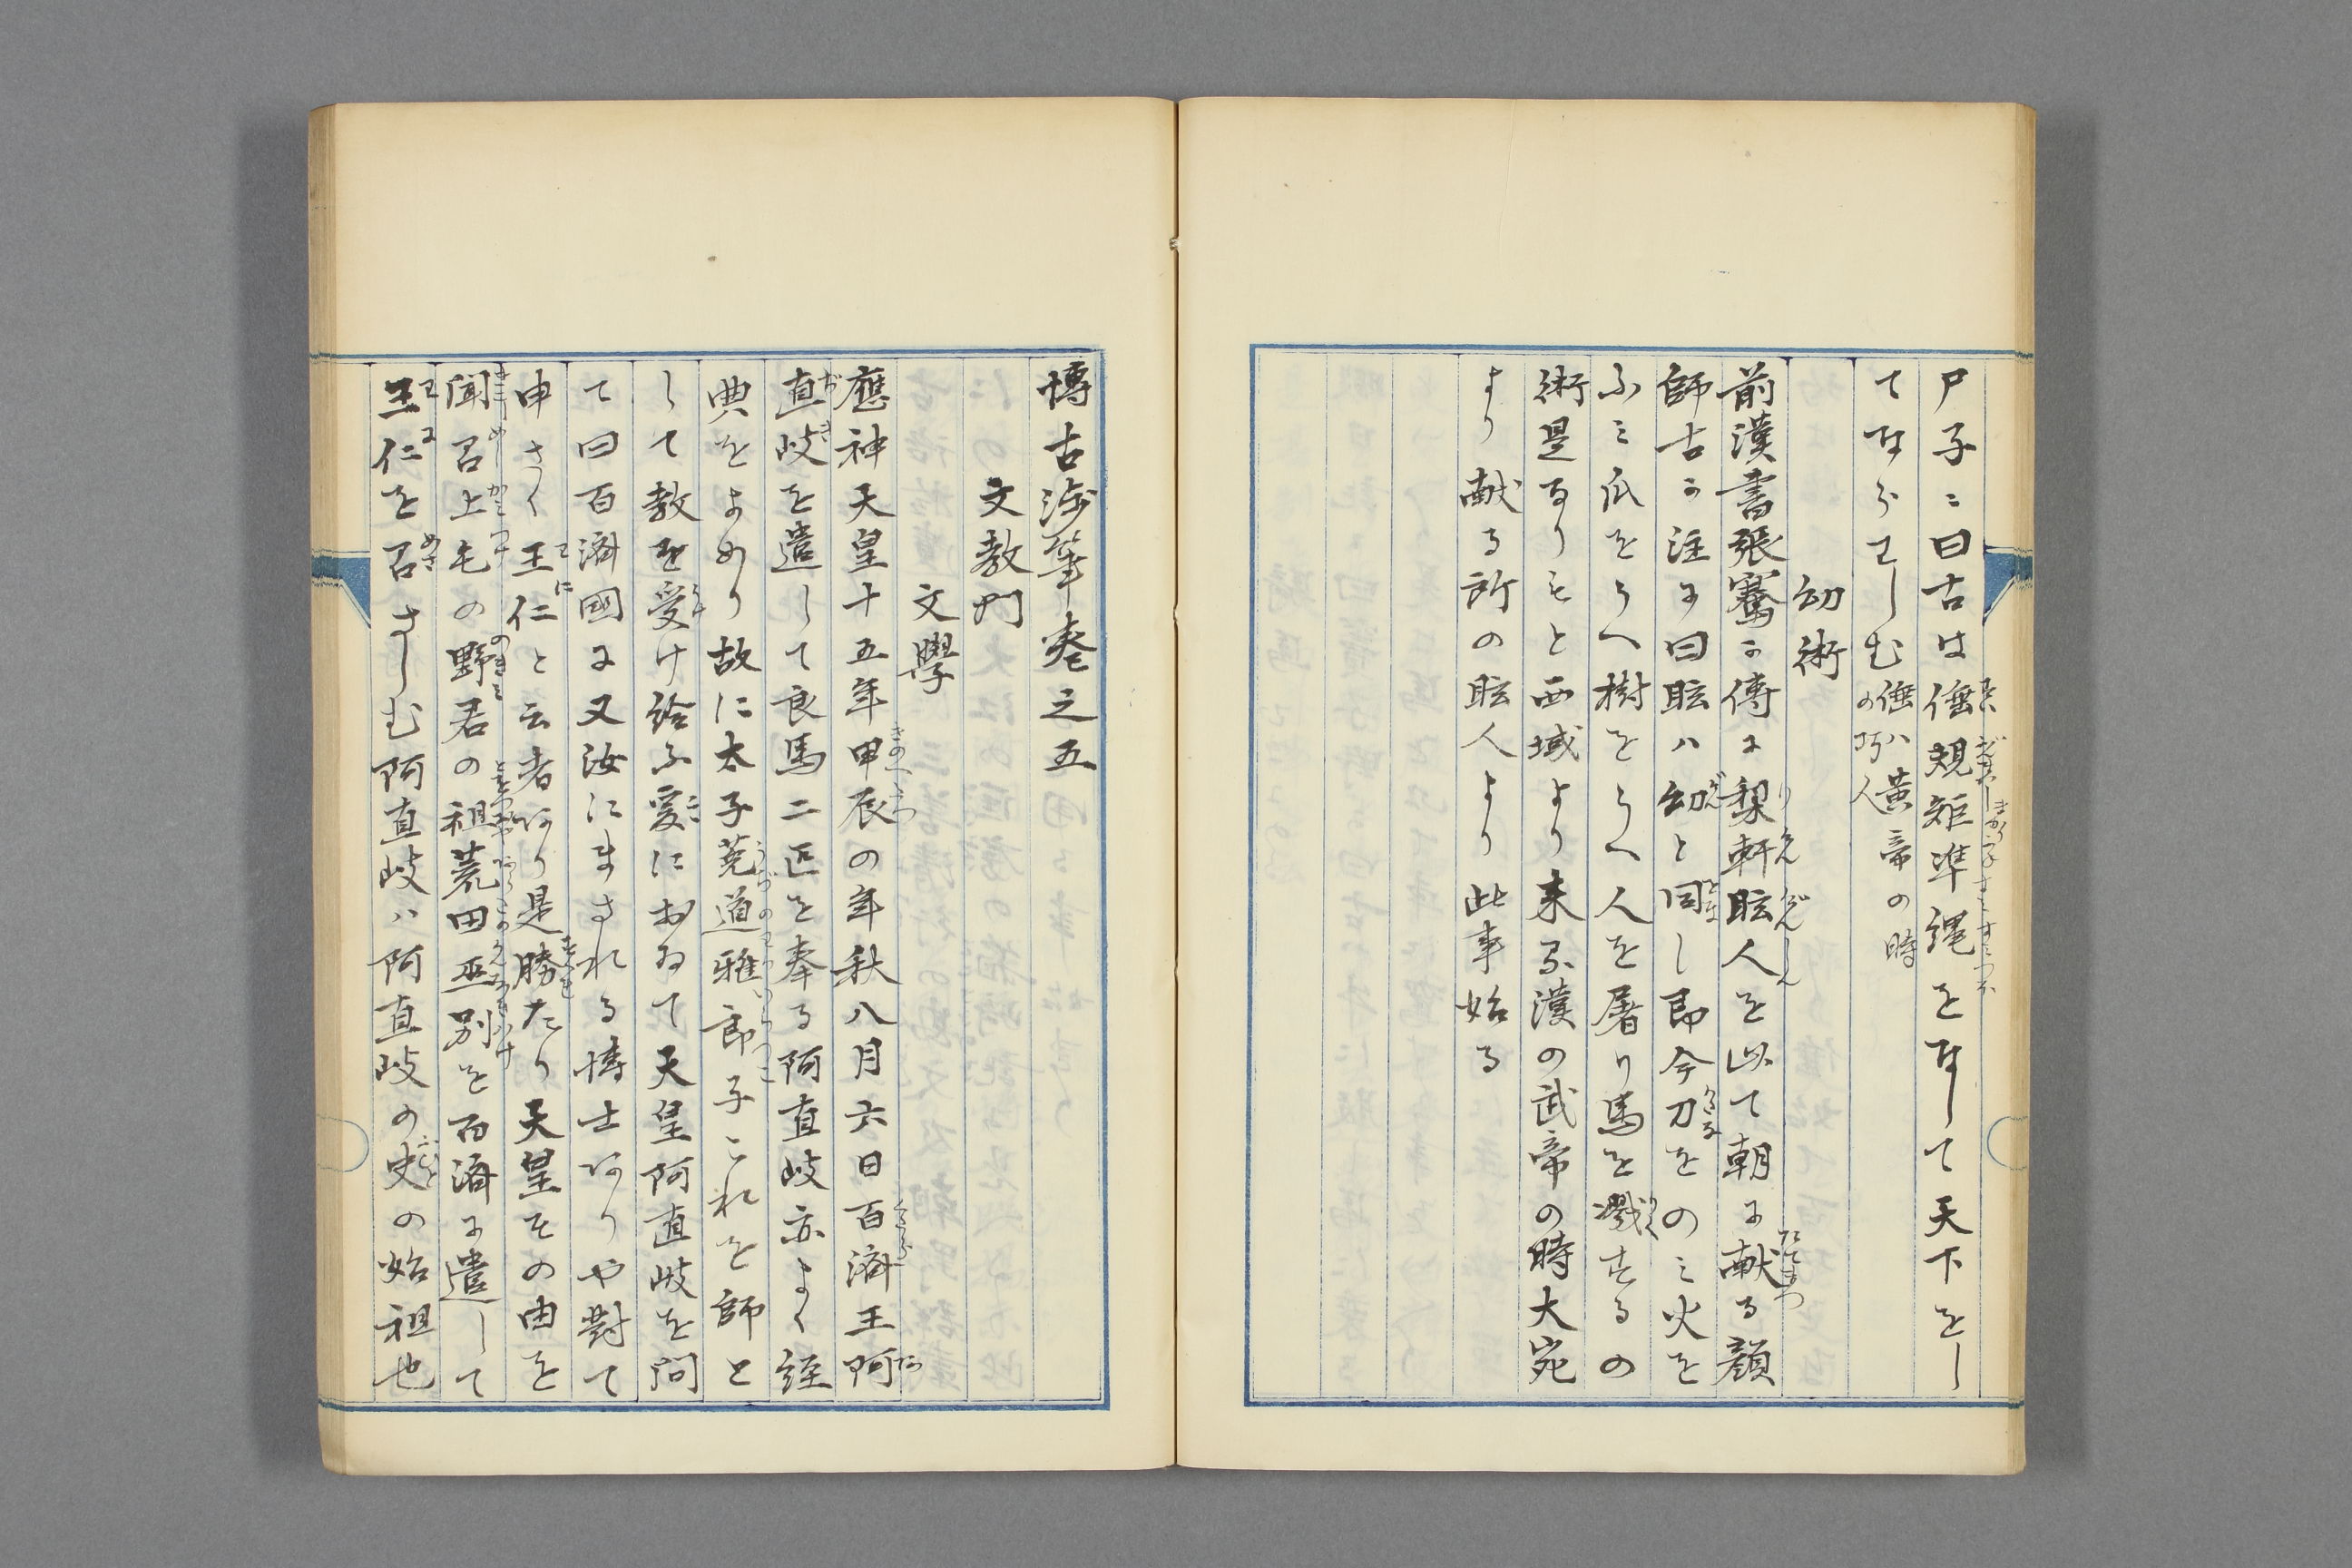 尸子ニ曰古は倕規矩準縄をなして天下をし
てならわしむ倕ハ黄帝の時の巧人
幻術
前漢書張騫か傳に犂軒眩人を以て朝に献る顔
師古か注に曰眩ハ幻と同し即今刀をのミ火を
ふミ瓜をうへ樹をうへ人を屠り馬を戮するの
術是なりもと西域より来る漢の武帝の時大宛
より献る所の眩人より此事始る
博古渉筆巻之五
文教門
文學
應神天皇十五年甲辰の年秋八月六日百済王阿
直岐を遣して良馬二匹を奉る阿直岐亦よく経
典をよめり故に太子莵道雅郎子これを師と
して教を受け給ふ爰におゐて天皇阿直岐を問
て曰百済國に又汝にまされる博士ありや對て
申さく王仁と云者あり是勝たり天皇その由を
聞召上毛の野君の祖荒田巫別を百済に遣して
王仁を召さしむ阿直岐ハ阿直岐の史の始祖也